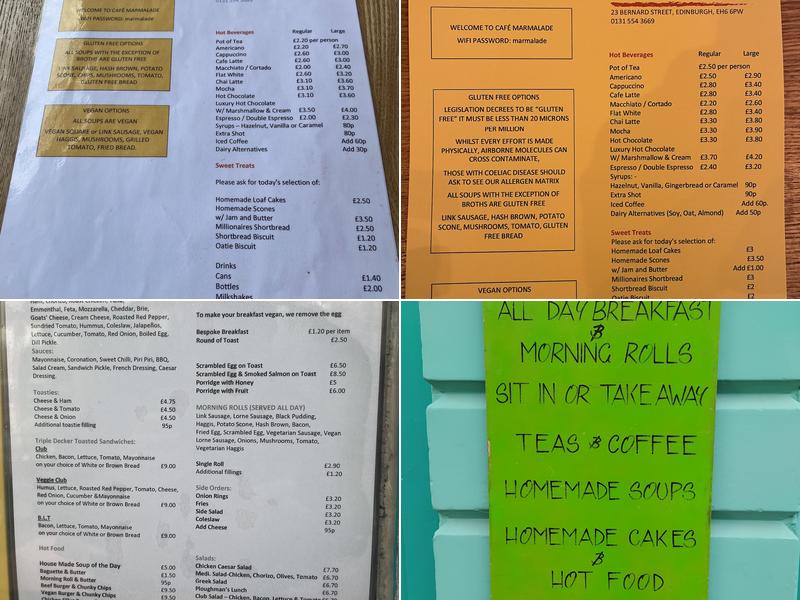 0131 554 3669
WELCOME TO CAFÉ MARMALADE
WIFI PASSWORD: marmalade
GLUTEN FREE OPTIONS
ALL SOUPS WITH THE EXCEPTION OF
BROTHS ARE GLUTEN FREE
LINK SAUSAGE, HASH BROWN, POTATO
SCONE, CHIPS, MUSHROOMS, TOMATO,
GLUTEN FREE BREAD
VEGAN OPTIONS
ALL SOUPS ARE VEGAN
VEGAN SQUARE or LINK SAUSAGE, VEGAN
HAGGIS, MUSHROOMS, GRILLED
TOMATO, FRIED BREAD.
Hot Beverages Regular Large
Pot of Tea £2.20 per person
Americano £2.20 £2.70
Cappuccino £2.60 £3.00
Cafe Latte £2.60 £3.00
Macchiato / Cortado £2.00 £2.40
Flat White £2.60 £3.20
Chai Latte £3.10 £3.60
Mocha £3.10 £3.70
Hot Chocolate £3.10 £3.60
Luxury Hot Chocolate
W/ Marshmallow & Cream £3.50 £4.00
Espresso / Double Espresso £2.00 £2.30
Syrups – Hazelnut, Vanilla or Caramel 80p
Extra Shot 80p
Iced Coffee Add 60p
Dairy Alternatives Add 30p
Sweet Treats
Please ask for today's selection of:
Homemade Loaf Cakes £2.50
Homemade Scones
w/ Jam and Butter £3.50
Millionaires Shortbread £2.50
Shortbread Biscuit £1.20
Oatie Biscuit £1.20
Drinks
Cans £1.40
Bottles £2.00
Milkshakes
23 BERNARD STREET, EDINBURGH, EH6 6PW
0131 554 3669
WELCOME TO CAFÉ MARMALADE
WIFI PASSWORD: marmalade
GLUTEN FREE OPTIONS
LEGISLATION DECREES TO BE "GLUTEN
FREE" IT MUST BE LESS THAN 20 MICRONS
PER MILLION
WHILST EVERY EFFORT IS MADE
PHYSICALLY, AIRBORNE MOLECULES CAN
CROSS CONTAMINATE,
THOSE WITH COELIAC DISEASE SHOULD
ASK TO SEE OUR ALLERGEN MATRIX
ALL SOUPS WITH THE EXCEPTION OF
BROTHS ARE GLUTEN FREE
LINK SAUSAGE, HASH BROWN, POTATO
SCONE, MUSHROOMS, TOMATO, GLUTEN
FREE BREAD
VEGAN OPTIONS
Hot Beverages Regular Large
Pot of Tea £2.50 per person
Americano £2.50 £2.90
Cappuccino £2.80 £3.40
Cafe Latte £2.80 £3.40
Macchiato / Cortado £2.20 £2.60
Flat White £2.80 £3.40
Chai Latte £3.30 £3.80
Mocha £3.30 £3.90
Hot Chocolate £3.30 £3.80
Luxury Hot Chocolate
W/ Marshmallow & Cream £3.70 £4.20
Espresso / Double Espresso £2.40 £2.80
Syrups: -
Hazelnut, Vanilla, Gingerbread or Caramel 90p
Extra Shot 90p
Iced Coffee Add 60p.
Dairy Alternatives (Soy, Oat, Almond) Add 50p
Sweet Treats
Please ask for today's selection of:
Homemade Loaf Cakes £3
Homemade Scones £3.50
w/ Jam and Butter Add £1.00
Millionaires Shortbread £3
Shortbread Biscuit £2
Oatie Biscuit £2
Emmenthal, Feta, Mozzarella, Cheddar, Brie,
Goats' Cheese, Cream Cheese, Roasted Red Pepper,
Sundried Tomato, Hummus, Coleslaw, Jalapeños,
Lettuce, Cucumber, Tomato, Red Onion, Boiled Egg,
Dill Pickle.
Sauces:
Mayonnaise, Coronation, Sweet Chilli, Piri Piri, BBQ,
Salad Cream, Sandwich Pickle, French Dressing, Caesar
Dressing.
Toasties:
Cheese & Ham £4.75
Cheese & Tomato £4.50
Cheese & Onion £4.50
Additional toastie filling 95p
Triple Decker Toasted Sandwiches:
Club
Chicken, Bacon, Lettuce, Tomato, Mayonnaise
on your choice of White or Brown Bread £9.00
Veggie Club
Humus, Lettuce, Roasted Red Pepper, Tomato, Cheese,
Red Onion, Cucumber &Mayonnaise
on your choice of White or Brown Bread £9.00
B.L.T
Bacon, Lettuce, Tomato, Mayonnaise
on your choice of White or Brown Bread £9.00
Hot Food
House Made Soup of the Day £5.00
Baguette & Butter £1.50
Morning Roll & Butter 95p
Beef Burger & Chunky Chips £9.50
Vegan Burger & Chunky Chips £9.50
To make your breakfast vegan, we remove the egg
Bespoke Breakfast £1.20 per item
Round of Toast £2.50
Scrambled Egg on Toast £6.50
Scrambled Egg & Smoked Salmon on Toast £8.50
Porridge with Honey £5
Porridge with Fruit £6.00
MORNING ROLLS (SERVED ALL DAY)
Link Sausage, Lorne Sausage, Black Pudding,
Haggis, Potato Scone, Hash Brown, Bacon,
Fried Egg, Scrambled Egg, Vegetarian Sausage, Vegan
Lorne Sausage, Onions, Mushrooms, Tomato,
Vegetarian Haggis
Single Roll £2.90
Additional fillings £1.20
Side Orders:
Onion Rings £3.20
Fries £3.20
Side Salad £3.20
Coleslaw £3.20
Add Cheese 95p
Salads:
Chicken Caesar Salad £7.70
Medi. Salad-Chicken, Chorizo, Olives, Tomato £6.70
Greek Salad £6.70
Ploughman's Lunch £6.70
Club Salad – Chicken, Bacon, Lettuce & Tomato £6.70
ALL DAY BREAKFAST
&
MORNING ROLLS
SIT IN OR TAKE AWAY
TEAS & COFFEE
HOMEMADE SOUPS
HOMEMADE CAKES
&
HOT FOOD